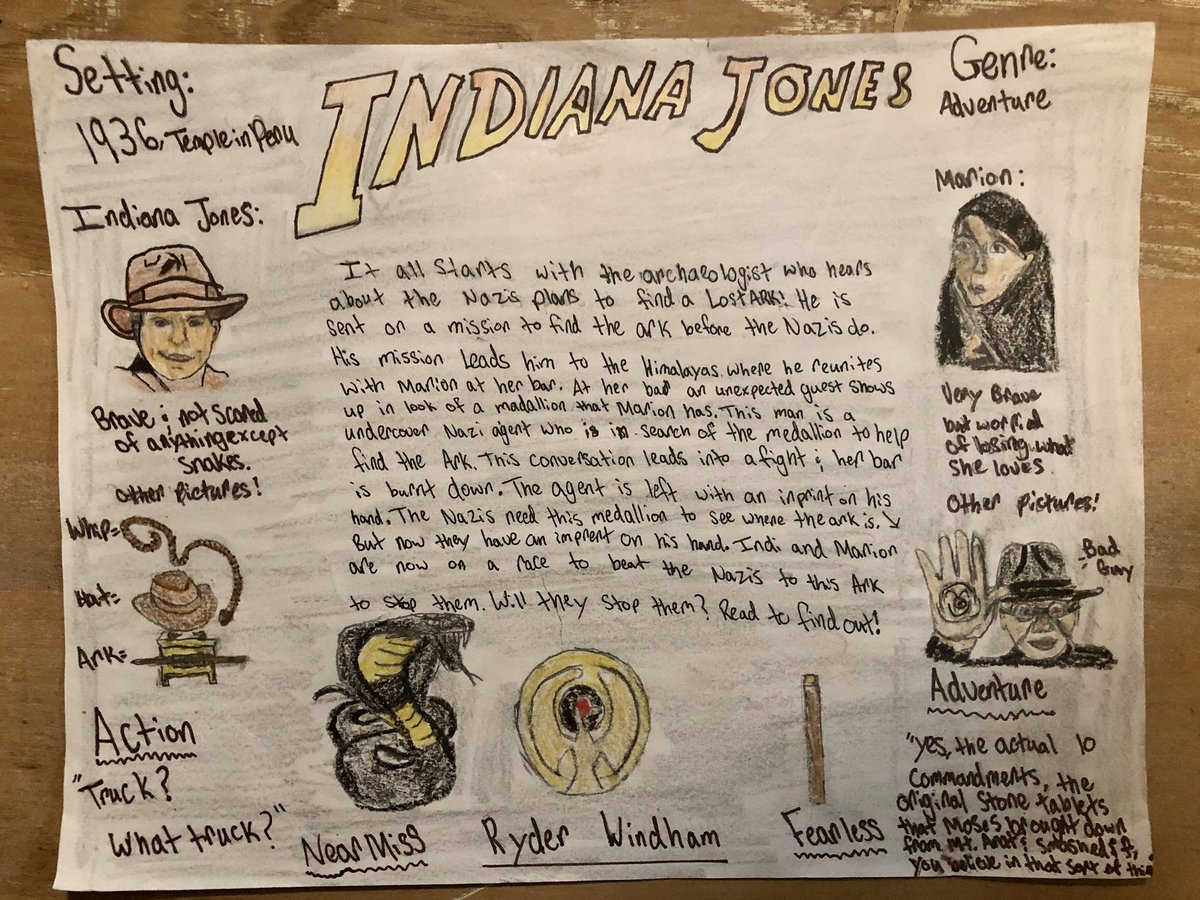 Setting:
1936, Temple in Peru
INDIANA JONES
Genre:
Adventure
Indiana Jones:
Brave & not scared
of anything except
snakes.
other pictures!
Whip=
Hat=
Ark=
Action
"Truck?
What truck?"
It all starts with the archaeologist who hears
about the Nazis plans to find a Lost ARK! He is
sent on a mission to find the ark before the Nazis do.
His mission leads him to the Himalayas, where he reunites
with Marion at her bar. At her bar an unexpected guest shows
up in look of a madallion that Marion has. This man is a
undercover Nazi agent who is in search of the medallion to help
find the Ark. This conversation leads into a fight & her bar
is burnt down. The agent is left with an inprint on his
hand. The Nazis need this medallion to see where the ark is.
But now they have an imprent on his hand. Indi and Marion
are now on a race to beat the Nazis to this Ark
to stop them. Will they stop them? Read to find out!
Near Miss
Ryder Windham
Fearless
Marion:
Very Brave
but worried
of losing what
she loves.
Other pictures!
-Bad
Guy
Adventure
"Yes, the actual 10
Commandments, the
original Stone tablets
that Moses brought down
from Mt. & smashed if,
you believe in that sort of